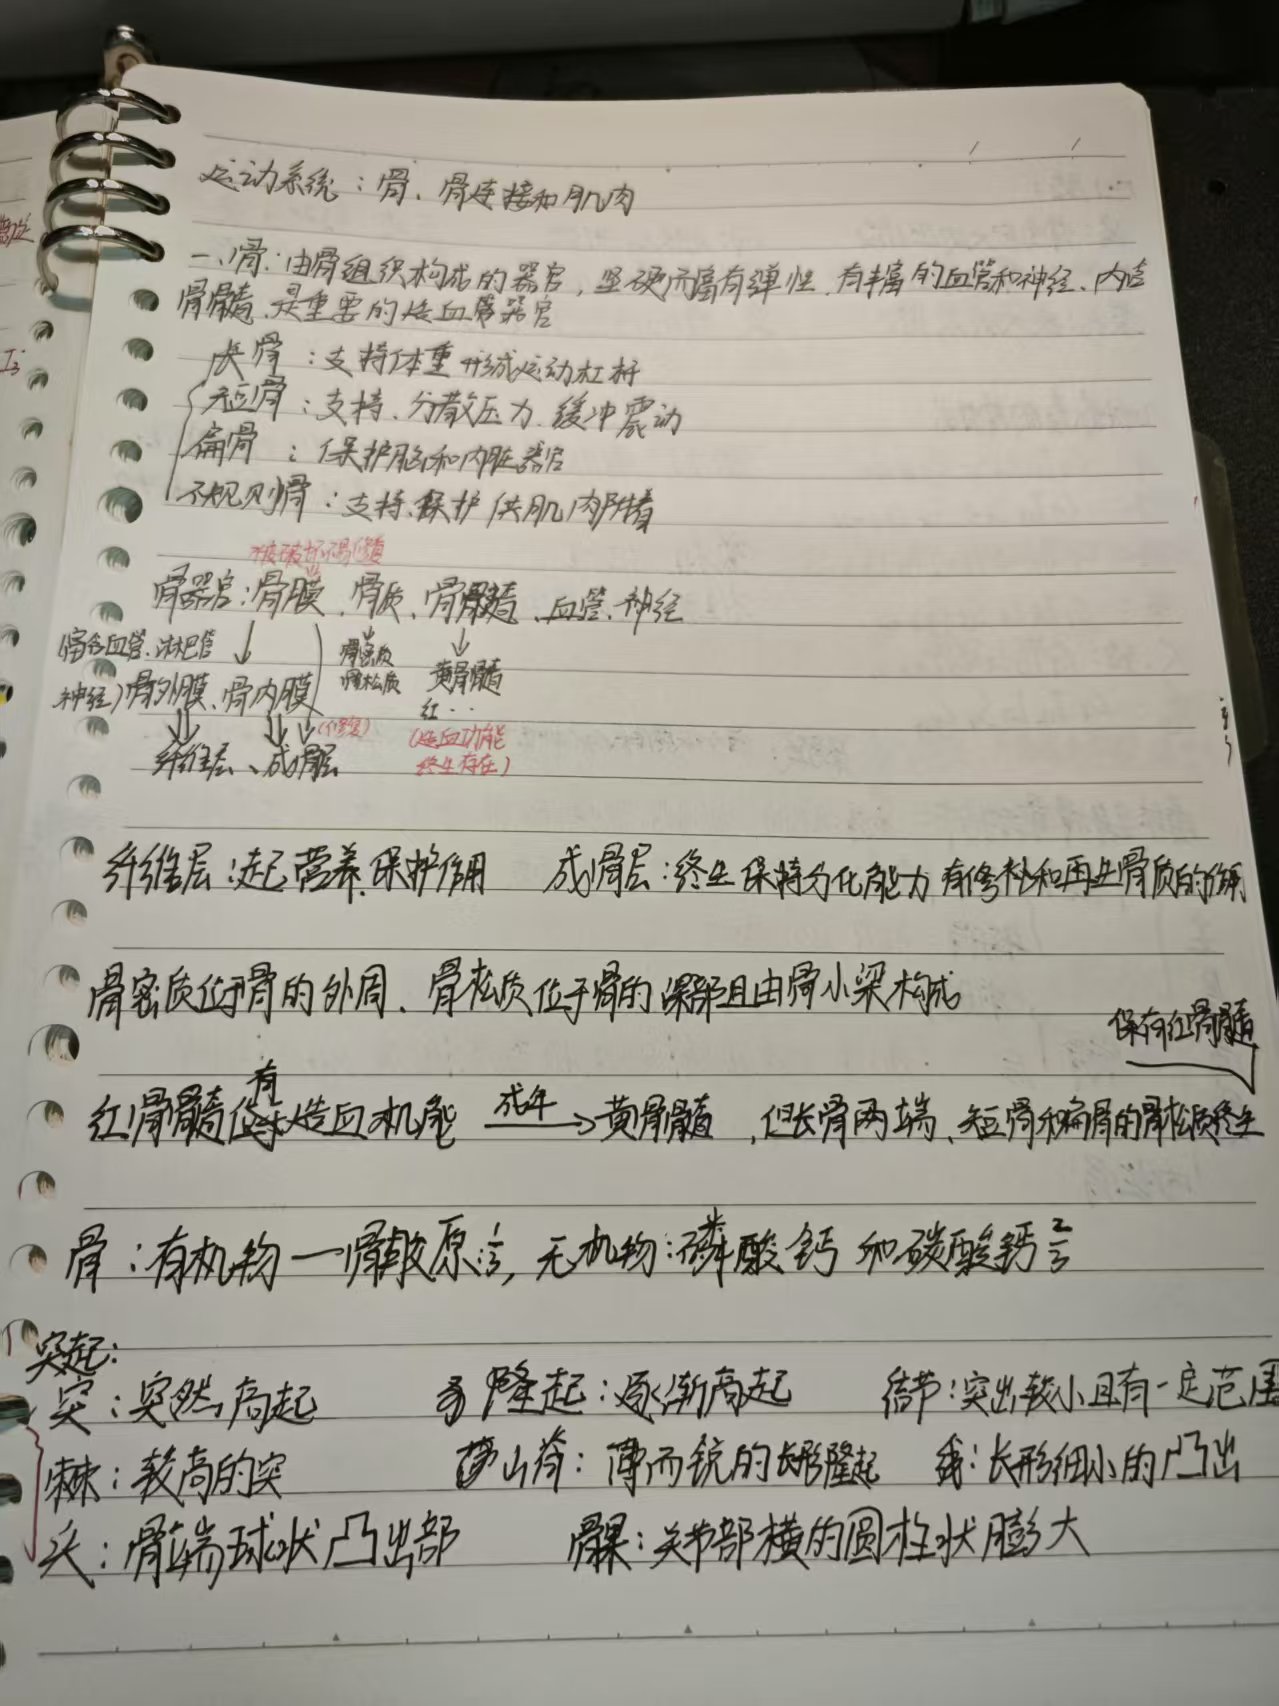 运动系统：骨、骨连接和肌肉
一、骨：由骨组织构成的器官，坚硬而富有弹性、有丰富的血管和神经、内含
骨髓、是重要的造血器官
长骨：支持体重 形成运动杠杆
短骨：支持、分散压力、缓冲震动
扁骨：保护脑和内脏器官
不规则骨：支持、保护 供肌肉附着
骨器官：骨膜、骨质、骨骼髓、血管、神经
(富含血管、淋巴管
神经)骨外膜、骨内膜
骨密质
骨松质
黄骨髓
红··
(修复)
(造血功能
终生存在)
纤维层、成骨层
纤维层：起营养、保护作用 成骨层：终生保持分化能力 有修补和再生骨质的作用
骨密质位于骨的外周、骨松质位于骨的深部且由骨小梁构成
保存红骨髓
有
红骨髓造血机能 成年→黄骨髓，但长骨两端、短骨和扁骨的骨松质终生
骨：有机物—骨胶原1/3，无机物：磷酸钙和碳酸钙2/3
突起：
突：突然高起 隆起：逐渐高起 结节：突出较小且有一定范围
棘：较高的突 嵴：薄而锐的长形隆起 线：长形细小的凸出
头：骨端球状凸出部 髁：关节部横的圆柱状膨大